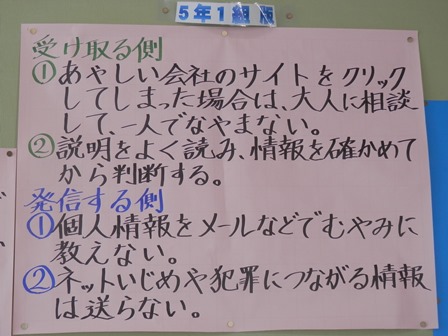 5年1組版
受け取る側
①あやしい会社のサイトをクリック
してしまった場合は、大人に相談
して、一人でなやまない。
②説明をよく読み、情報を確かめて
から判断する。
発信する側
①個人情報をメールなどでむやみに
教えない。
②ネットいじめや犯罪につながる情報
は送らない。